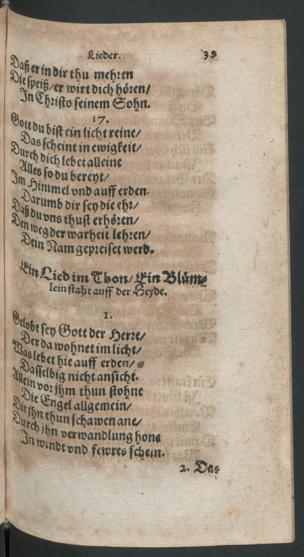 Lieder. 39
Daß er in dir thu mehren
Die speiß/ er wirt dich hören/
In Christo seinem Sohn.
17.
Gott du bist ein licht reine/
Das scheint in ewigkeit/
Durch dich lebet alleine
Alles so du bereyt/
Im Himmel vnd auff erden.
Darumb dir sey die ehr/
Daß du vns thust erhören/
Den weg der warheit lehren/
Dein Nam gepreiset werd.
Ein Lied im Thon/ Ein Blüm-
lein staht auff der Heyde.
1.
Gelobt sey Gott der Herre/
Der da wohnet im licht/
Was lebet hie auff erden/
Dasselbig nicht ansicht.
Allein vor ihm thun stohne
Die Engel allgemein/
Die ihn thun schawen ane/
Durch ihn verwandlung hone
In windt vnd fewres schein.
2. Das